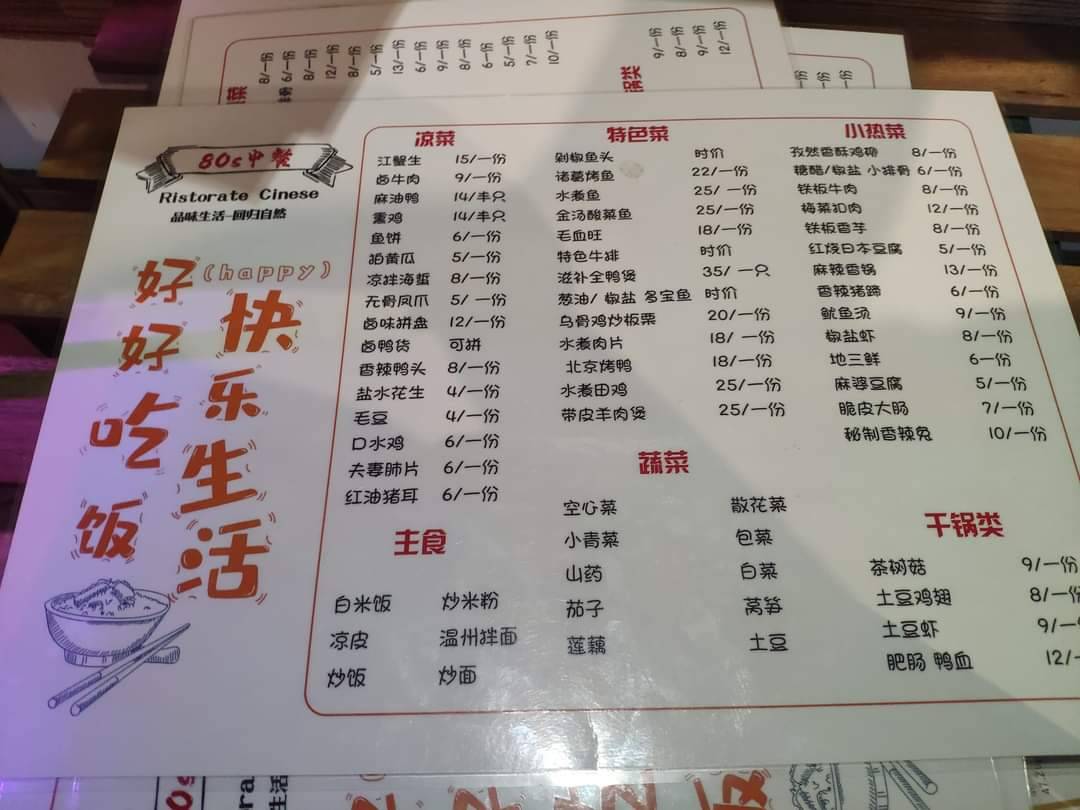 80s中餐
Ristorate Cinese
品味生活-回归自然
好好吃饭
(happy)
快乐生活
凉菜
江蟹生 15/一份
卤牛肉 9/一份
麻油鸭 14/半只
熏鸡 14/半只
鱼饼 6/一份
拍黄瓜 5/一份
凉拌海蜇 8/一份
无骨凤爪 5/一份
卤味拼盘 12/一份
卤鸭货 可拼
香辣鸭头 8/一份
盐水花生 4/一份
毛豆 4/一份
口水鸡 6/一份
夫妻肺片 6/一份
红油猪耳 6/一份
特色菜
剁椒鱼头 时价
诸葛烤鱼 22/一份
水煮鱼 25/一份
金汤酸菜鱼 25/一份
毛血旺 18/一份
特色牛排 时价
滋补全鸭煲 35/一只
葱油/椒盐 多宝鱼 时价
乌骨鸡炒板栗 20/一份
水煮肉片 18/一份
北京烤鸭 18/一份
水煮田鸡 25/一份
带皮羊肉煲 25/一份
小热菜
孜然香酥鸡柳 8/一份
糖醋/椒盐 小排骨 6/一份
铁板牛肉 8/一份
梅菜扣肉 12/一份
铁板香芋 8/一份
红烧日本豆腐 5/一份
麻辣香锅 13/一份
香辣猪蹄 6/一份
鱿鱼汤 9/一份
椒盐虾 8/一份
地三鲜 6一份
麻婆豆腐 5/一份
脆皮大肠 7/一份
秘制香辣兔 10/一份
主食
白米饭 炒米粉
凉皮 温州拌面
炒饭 炒面
蔬菜
空心菜 散花菜
小青菜 包菜
山药 白菜
茄子 莴笋
莲藕 土豆
干锅类
茶树菇 9/一份
土豆鸡翅 8/一份
土豆虾 9/一
肥肠 鸭血 12/一
8/一份
6/一份
8/一份
12/一份
8/一份
5/一份
13/一份
6/一份
9/一份
8/一份
6一份
5/一份
7/一份
10/一份
锅类
9/一份
8/一份
9/一份
12/一份
80s
Ristora
生活